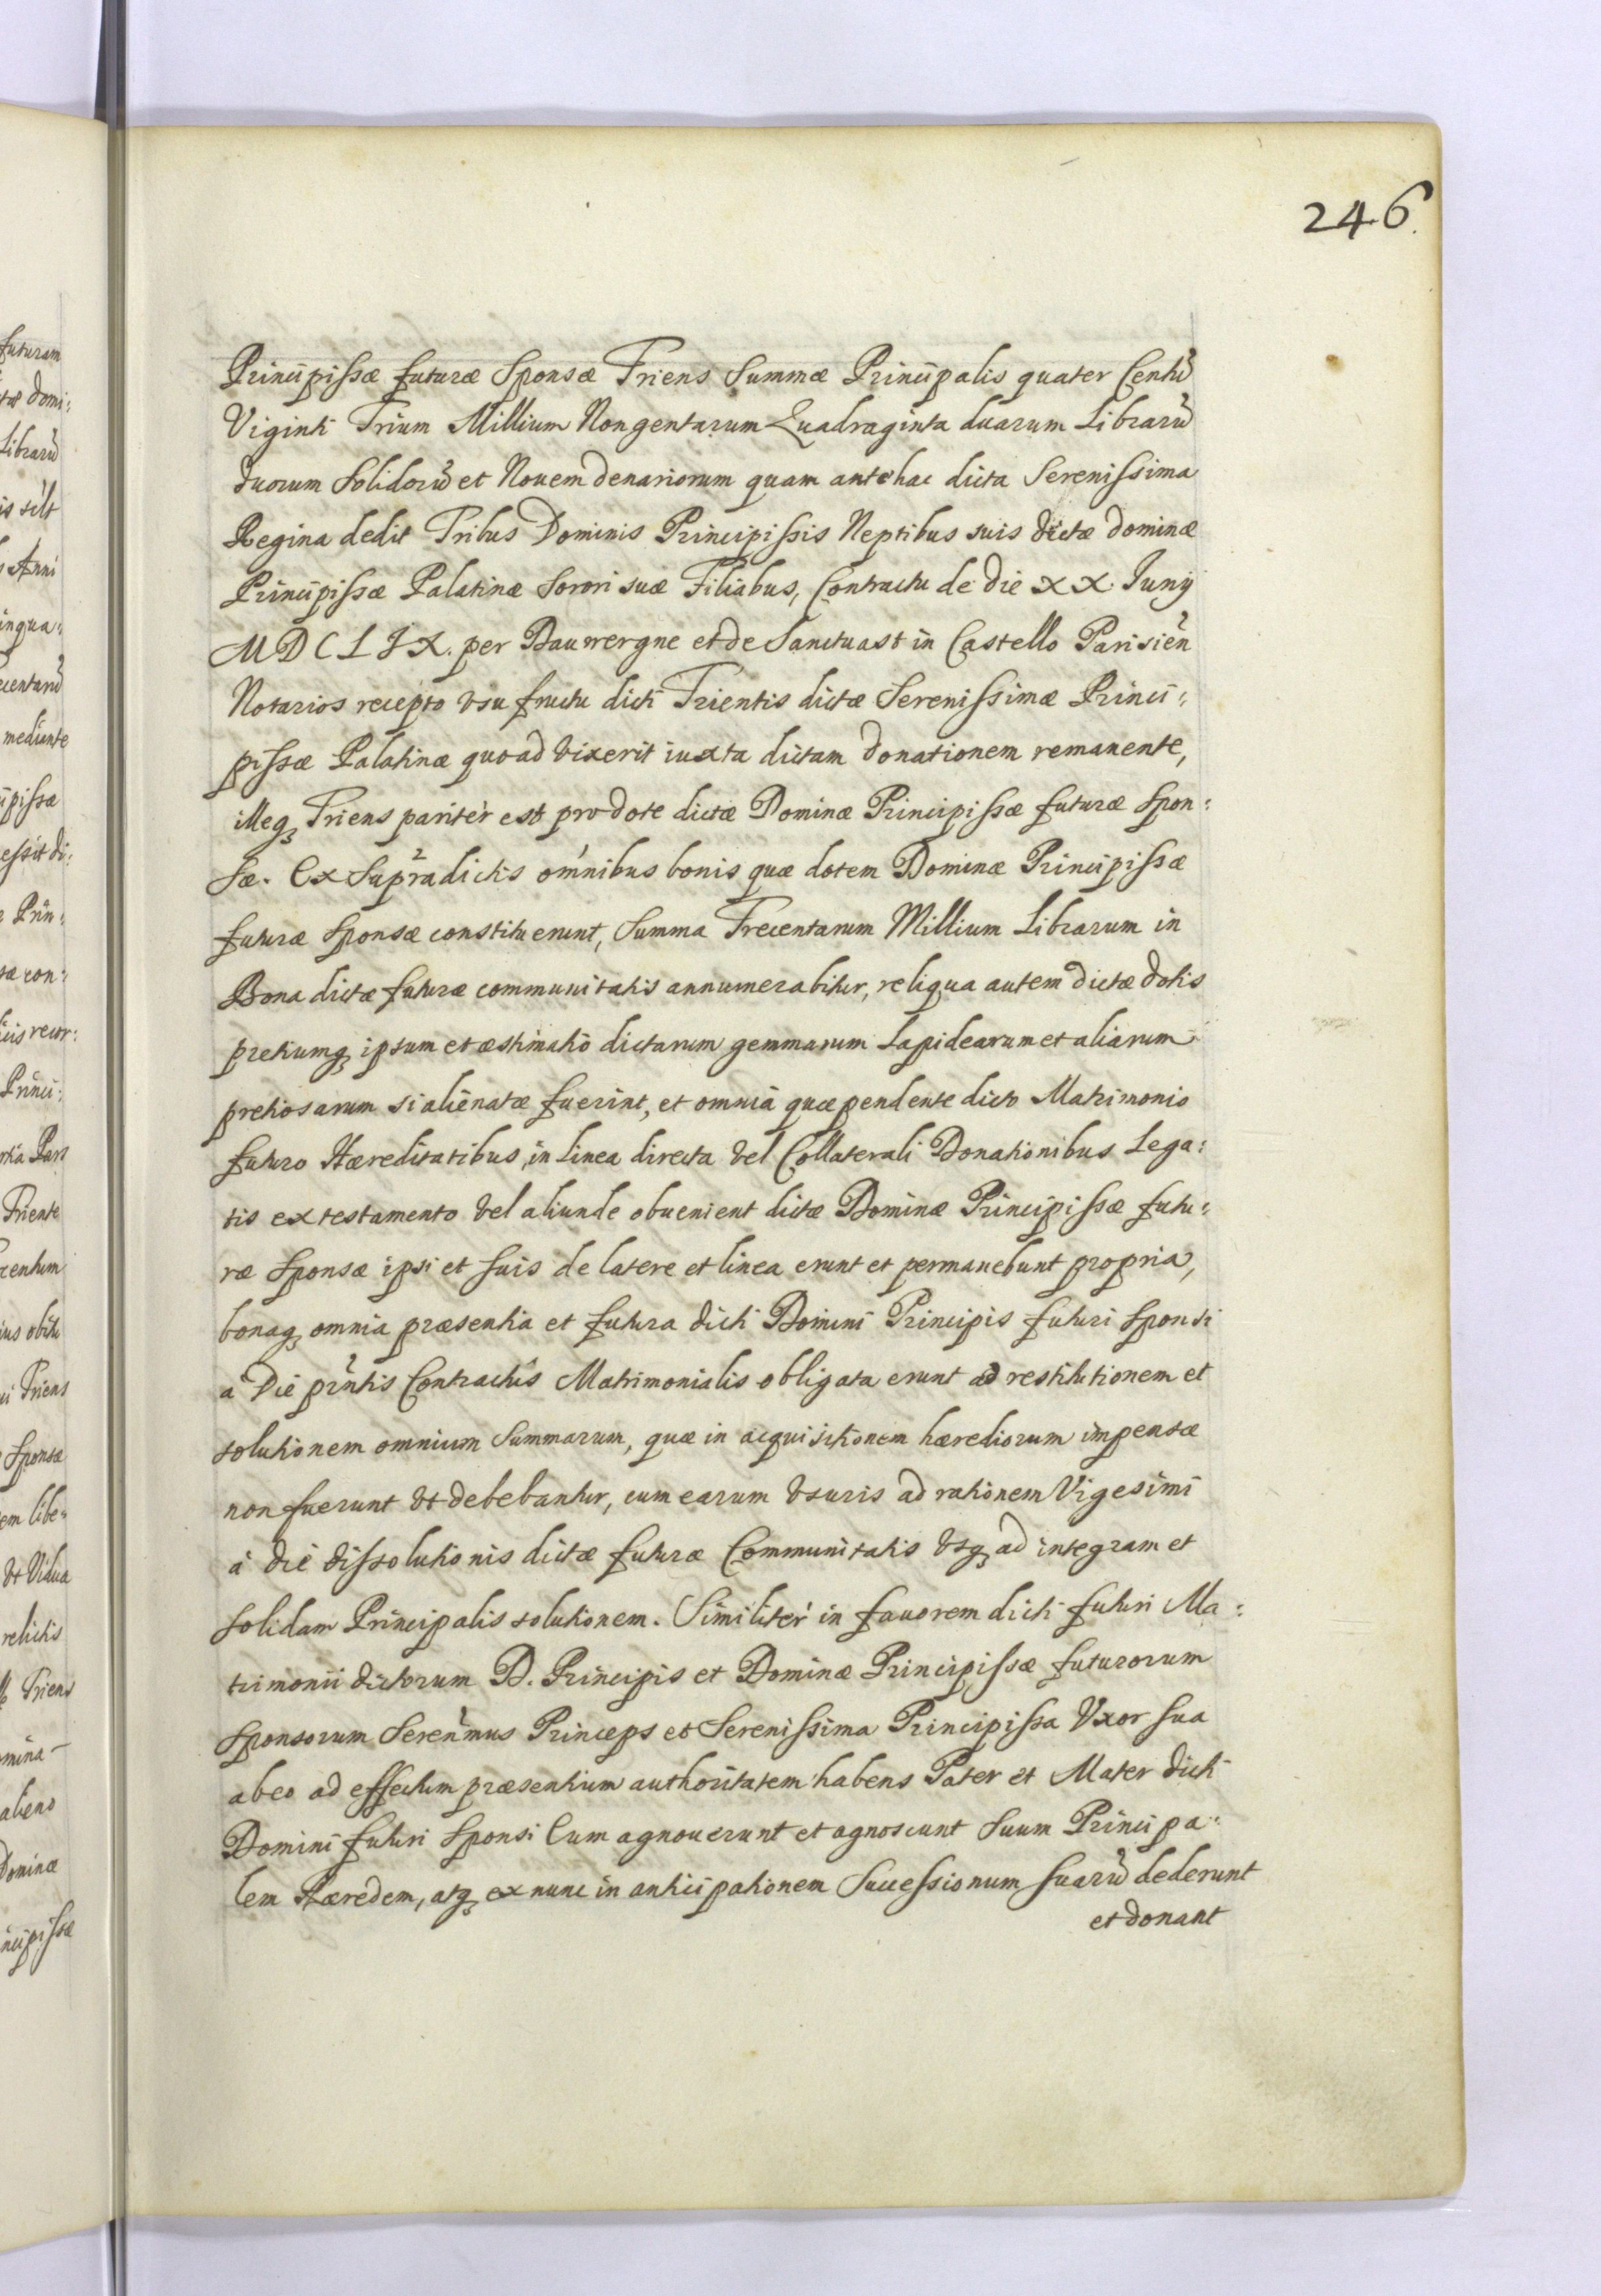 246.
Principissæ futuræ Sponsæ Triens Summæ Principalis quater Centũ
Viginti Trium Millium Nongentarum Quadraginta duarum Librarũ
duorum Solidorũ et Nouem denariorum quam antehac dicta Serenissima
Regina dedit Tribus Dominis Principissis Neptibus suis dictæ dominæ
Principissæ Palatinæ Sorori suæ Filiabus, Contractu de die XX. Iunÿ
MDCLIX. per Bauwergne et de Sanctuast in Castello Parisieñ
Notarios recepto vsu fructu dicti Trientis dictæ Serenissimæ Princi:
pissæ Palatinæ quoad vixerit iuxta dictam donationem remanente,
illeq₃ Triens pariter est pro dote dictæ Dominæ Principissæ futuræ Spon:
sæ. Ex Supradictis omnibus bonis quæ dotem Dominæ Principissæ
futuræ Sponsæ constituerunt, Summa Trecentarum Millium Librarum in
Bona dictæ futuræ communitatis annumerabitur, reliqua autem dictæ dotis
pretiumq₃ ipsum et æstimatiõ dictarum gemmarum Lapidearum et aliarum
pretiosarum si alienatæ fuerint, et omnia quæ pendente dicto Matrimonio
futuro Hæreditatibus, in Linea directa vel Collaterali Donationibus Lega:
tis ex testamento vel aliunde obuenient dictæ Dominæ Principissæ futu:
ræ Sponsæ ipsi et suis de latere et linea erunt et permanebunt propria,
bonaq₃ omnia præsentia et futura dicti Domini Principis futuri Sponsi
à Die pñtis Contractûs Matrimonialis obligata erunt ad restitutionem et
solutionem omnium Summarum, quæ in acquisitionem hærediorum impensæ
non fuerunt vt debebantur, cum earum vsuris ad rationem Vigesimi
à die dissolutionis dictæ futuræ Communitatis vsq₃ ad integram et
solidam Principalis solutionem. Similiter in fauorem dicti futuri Ma:
trimonii dictorum D. Principis et Dominæ Principissæ futurorum
Sponsorum Sereñmus Princeps et Serenissima Principissa Vxor sua
ab eo ad effectum præsentium authoritatem habens Pater et Mater dicti
Domini futuri Sponsi Eum agnouerunt et agnoscunt Suum Principa:
lem Hæredem, atq₃ ex nunc in anticipationem Successionum suarũ dederunt
et donant
futuram
domi:
Librarũ
Anni
mediante
Prin:
con:
Princi:
Triente
obitu
Triens
Sponsæ
libe:
vt Vidua
relictis
Triens
alieno
Dominæ